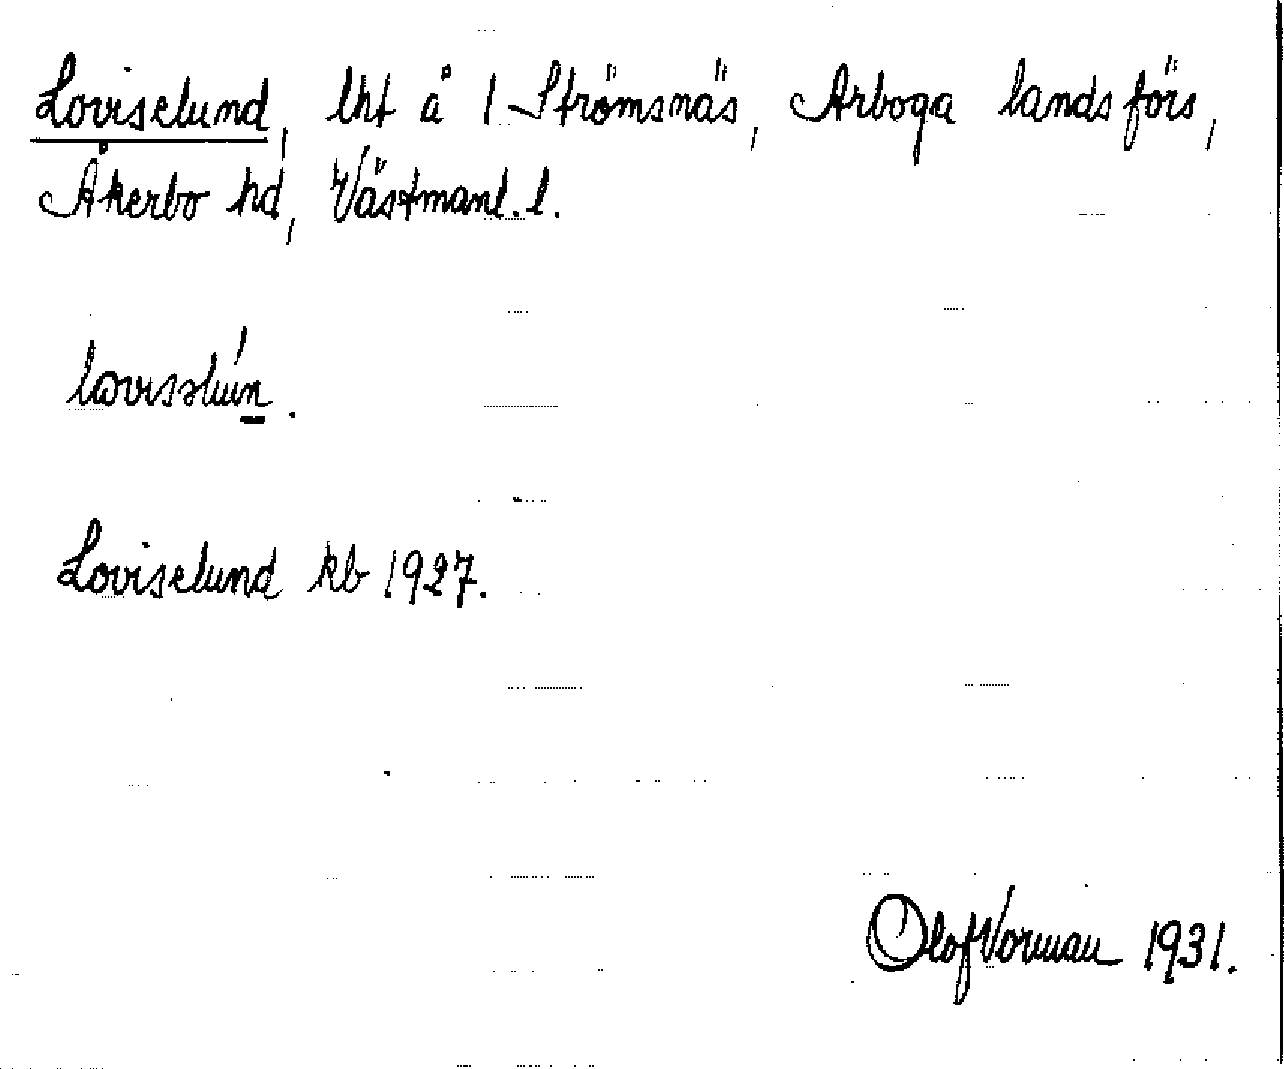 Loviselund, lht å 1 Strömsnäs, Arboga landsförs,
Åkerbo hd, Västmanl. l.
Loviselund kb 1927.
Olof Vorman 1931.